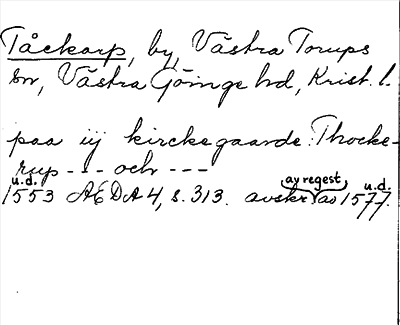 Tåckarp, by, Västra Torups
sn, Västra Göinge hd, Krist. l.
paa iij kirckegaarde: Thocke-
rup --- och ---
u.d. av regest u.d.
1553 AEDA 4, s. 313. avskr av 1577.